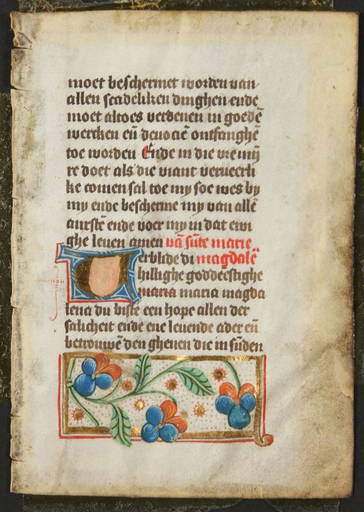 moet beschermet worden van
allen scadeliken dinghen ende
moet altoes verdenen in goedē
wercken eñ deuociē ontfanghē
toe worden Ende in die vre mij
re doet als die viant verueerli
ke comen sal toe my soe wes by
my ende bescherme my van allē
anxste ende voer my in dat ewi
ghe leuen amen vā sūte marie
erblide di magdalē
hillighe goddeestighe
maria maria magda
lena du biste een hope allen der
salicheit ende ene leuende ader eñ
betrouwē den ghenen die in sūden